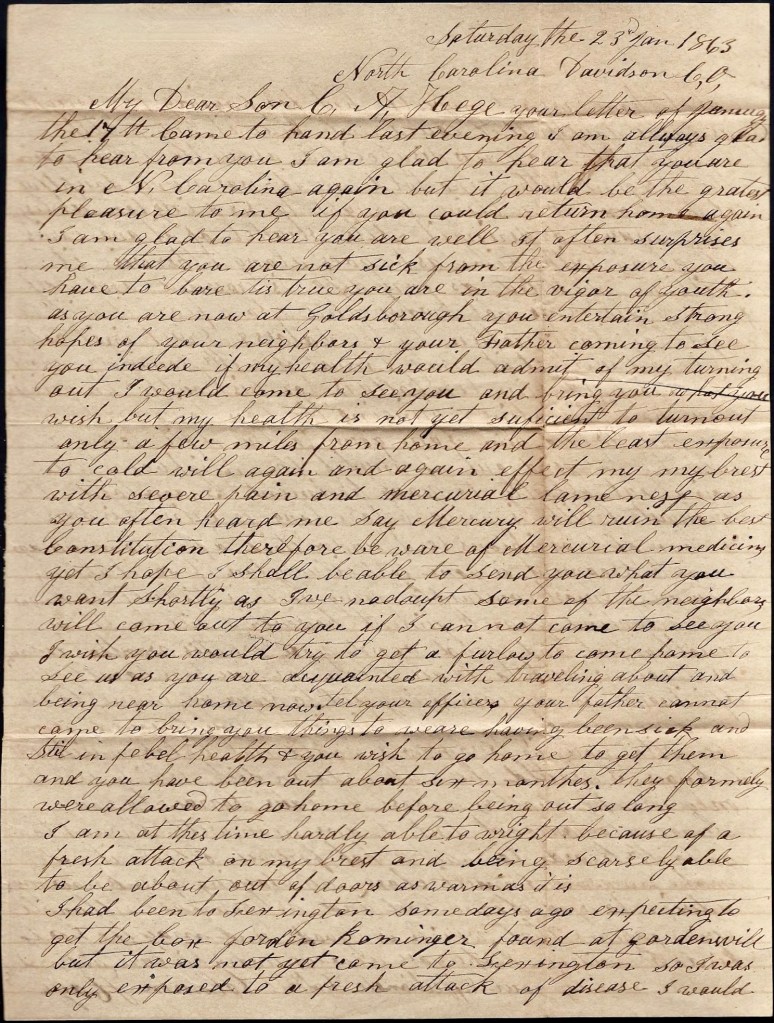 Saturday the 23rd Jan 1863
North Carolina Davidson C,O,
My Dear Son C. A, Hege your letter of January
the 17th Came to hand last evening I am allways glad
to hear from you I am glad to hear that you are
in N. Carolina again but it would be the gratest
pleasure to me if you could return home again
I am glad to hear you are well it often surprises
me that you are not sick from the exposure you
have to bare tis true you are in the vigor of youth.
as you are now at Goldsborough you entertain strong
hopes of your neighbors & your Father coming to see
you indeede if my health would admit of my turning
out I would come to see you and bring you what you
wish but my health is not yet suficient to turn out
only a few miles from home and the least exposure
to cold will again and again effect my my brest
with severe pain and mercurial lameness as
you often heard me say Mercury will ruin the best
Constitution therefore be ware of Mercurial medicins
yet I hope I shall be able to send you what you
want shortly as I've no doupt some of the neighbors
will come out to you if I can not come to see you
I wish you would try to get a furlow to come home to
see us as you are acquainted with traveling about and
being near home now. tel your officers your father cannot
come to bring you things to weare having been sick and
stil in febel health & you wish to go home to get them
and you have been out about six monthes. they formely
were allowed to go home before being out so long
I am at this time hardly able to wright because of a
fresh attack on my brest and being scarsely able
to be about, out of doors as warm as it is
I had been to Lexington some days ago expecting to
get the box Jorden Rominger found at gordensvill
but it was not yet come to Lexington so I was
only exposed to a fresh attack of disease I would